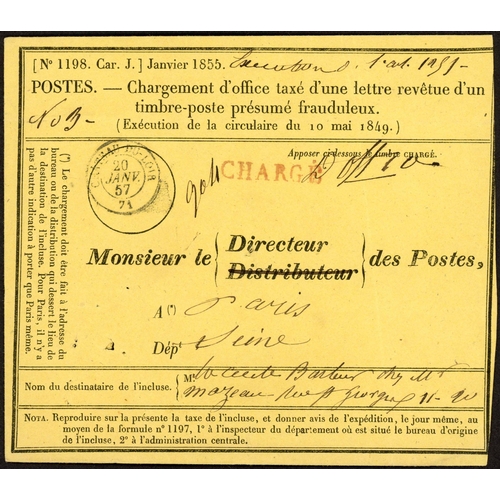 [N° 1198. Car. J.] Janvier 1855.
POSTES. — Chargement d'office taxé d'une lettre revêtue d'un
timbre-poste présumé frauduleux.
(Exécution de la circulaire du 10 mai 1849.)
Apposer ci-dessous le timbre CHARGÉ.
CHARGÉ
d'office
20
JANV.
57
(71)
904
(*) Le chargement doit être fait à l'adresse du
bureau ou de la distribution qui dessert le lieu de
la destination de l'incluse. Pour Paris, il n'y a
pas d'autre indication à porter que Paris même.
Monsieur le { Directeur
Distributeur } des Postes,
A (*) Paris
Dépt Seine
Nom du destinataire de l'incluse. { M.
NOTA. Reproduire sur la présente la taxe de l'incluse, et donner avis de l'expédition, le jour même, au
moyen de la formule n° 1197, 1° à l'inspecteur du département où est situé le bureau d'origine
de l'incluse, 2° à l'administration centrale.